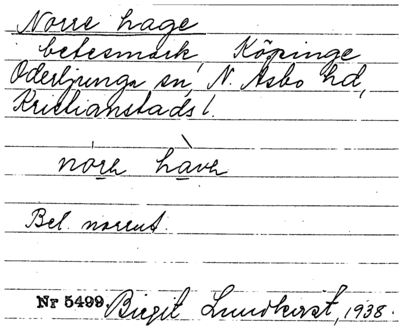 Norre hage
betesmark, Köpinge
Oderljunga sn, N. Åsbo hd,
Kristianstads l.
nórh hàvh
Bel. norrut.
Nr 5499. Birgit Lundkvist, 1938.